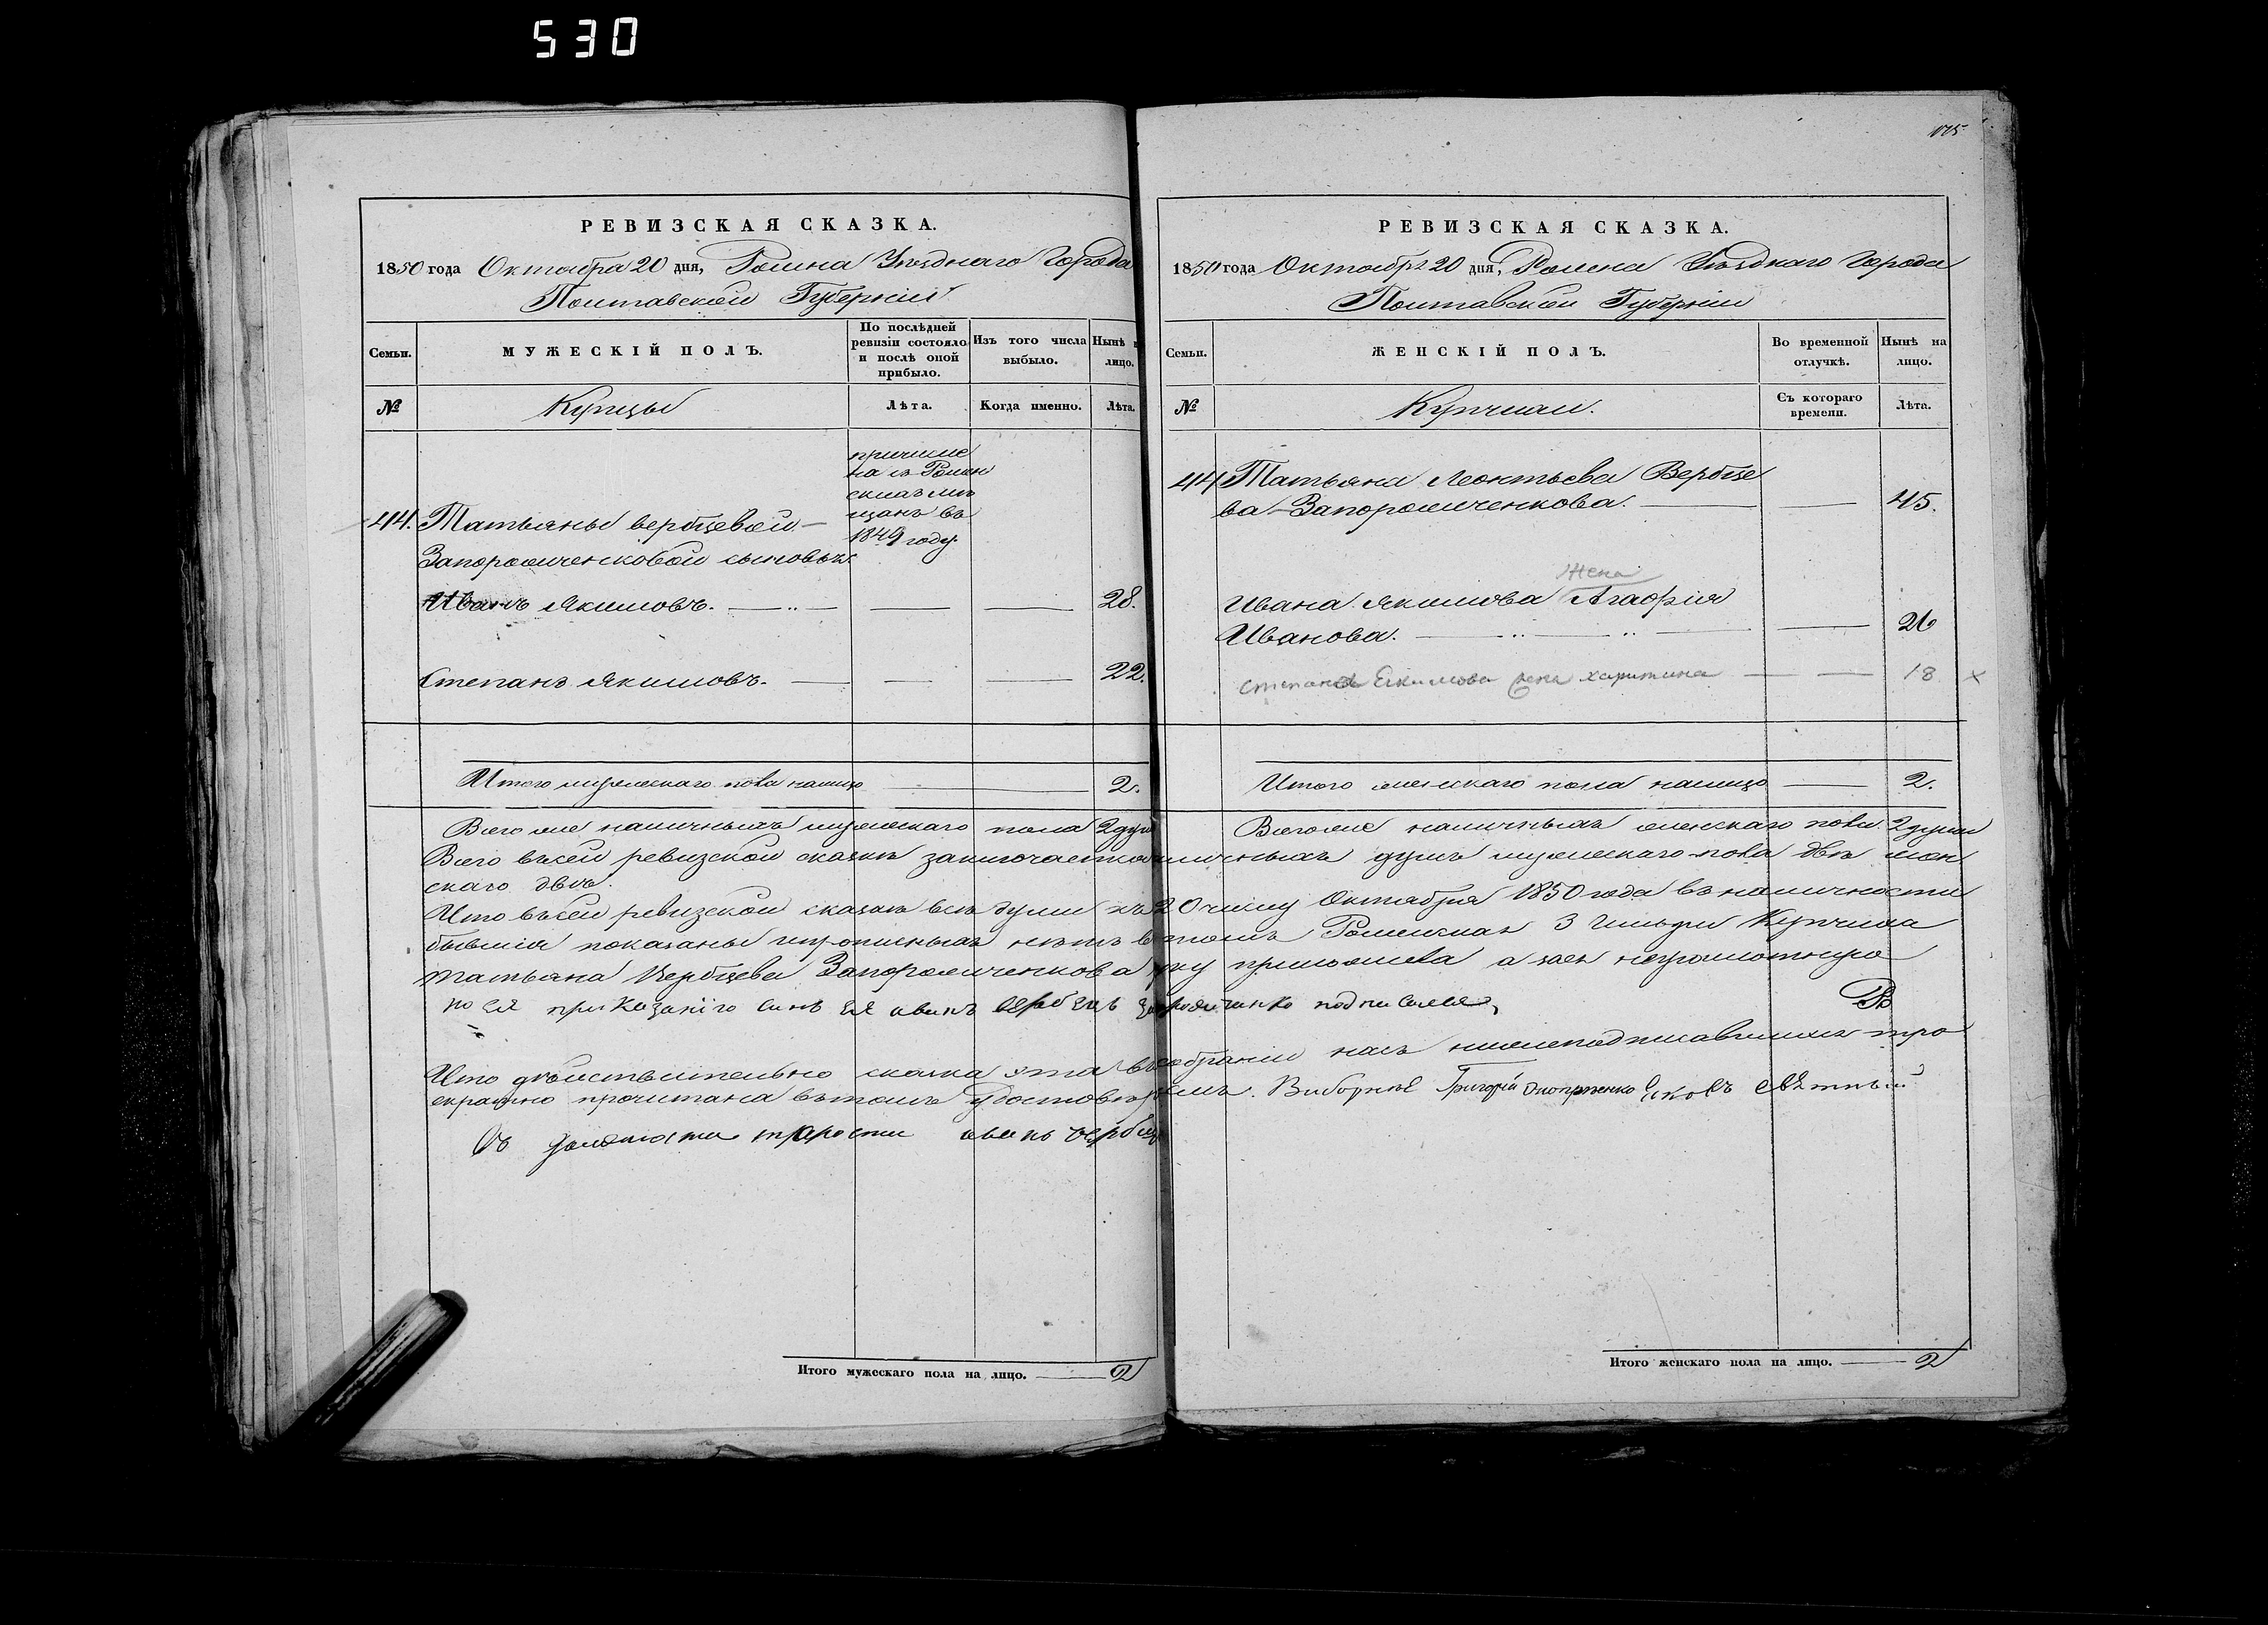 530
175
РЕВИЗСКАЯ СКАЗКА.
1850 года Октября 20 дня, Ромна Уѣзднаго Города
Полтавской Губерніи
Семьи.
МУЖЕСКІЙ ПОЛЪ.
По послѣдней ревизіи состояло и послѣ оной прибыло.
Изъ того числа выбыло.
Нынѣ н лицо.
№
Купцы
Лѣта.
Когда именно.
Лѣта.
причисле
на изъ Ромен
скихъ мѣ
щанъ въ
1849 году.
44. Татьяны Вербцевой-
Запорожченковой сыновья.
Иванъ Якимовъ. 28.
Степанъ Якимовъ. 22.
Итого мужескаго пола налицо 2.
Всего же наличныхъ мужескаго пола 2 душ
РЕВИЗСКАЯ СКАЗКА.
1850 года Октября 20 дня, Ромена Уѣзднаго Города
Полтавской Губерніи
Семьи.
ЖЕНСКІЙ ПОЛЪ.
Во временной отлучкѣ.
Нынѣ на лицо.
№
Купчихи.
Съ котораго времени.
Лѣта.
44 Татьяна Леонтьева Вербце
ва-Запорожченкова. 45.
жена
Ивана Якимова Агафія
Иванова. 26
Степана Екимова жена харитина 18 x
Итого женскаго пола налицо 2.
Всего же наличныхъ женскаго пола 2 души
Всего въ сей ревизской сказкѣ заключается наличныхъ душъ мужескаго пола двѣ жен
скаго двѣ.
Что въ сей ревизской сказкѣ всѣ души къ 20 числу Октября 1850 года въ наличности
бывшія показаны и прописныхъ нѣтъ въ томъ Роменская 3 Гильдіи Купчиха
Татьяна Вербцева Запорожченкова руку приложила а за ея неграмотную
по ея приказанію синъ ея иванъ вербецъ запорожченко подписался
Что дѣйствительно сказка эта въ собраніи насъ нижеподписавшихся тро
екратно прочитана въ томъ удостовѣряемъ. Виборные Григорій
въ должности старости иванъ вербец
Итого мужескаго пола на лицо. 2
Итого женскаго пола на лицо. 2